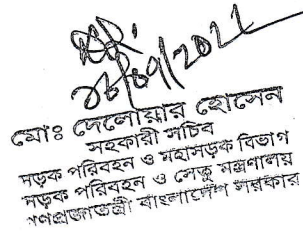 ০৮/০৭/2022
মোঃ দেলোয়ার হোসেন
সহকারী সচিব
সড়ক পরিবহন ও মহাসড়ক বিভাগ
সড়ক পরিবহন ও সেতু মন্ত্রণালয়
গণপ্রজাতন্ত্রী বাংলাদেশ সরকার